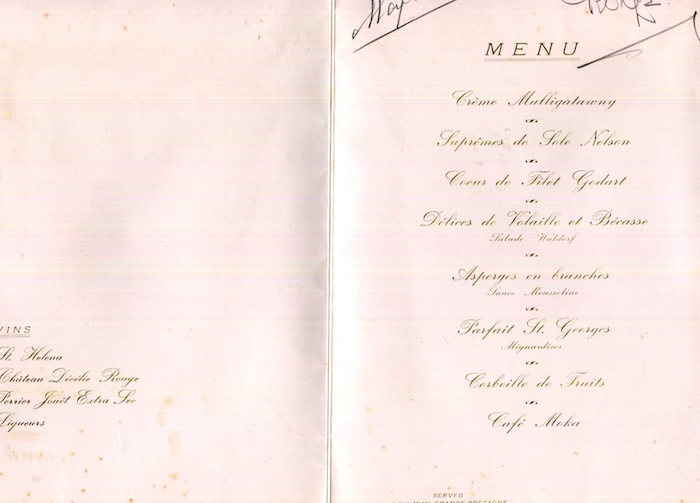 VINS
St. Helena
Château Décélie Rouge
Perrier Jouët Extra Sec
Liqueurs
MENU
Crème Mulligatawny
Suprêmes de Sole Nelson
Coeur de Filet Godart
Délices de Volaille et Bécasse
Salade Waldorf
Asperges en branches
Sauce Mousseline
Parfait St. Georges
Mignardises
Corbeille de Fruits
Café Moka
SERVED
GRANDE-BRETAGNE